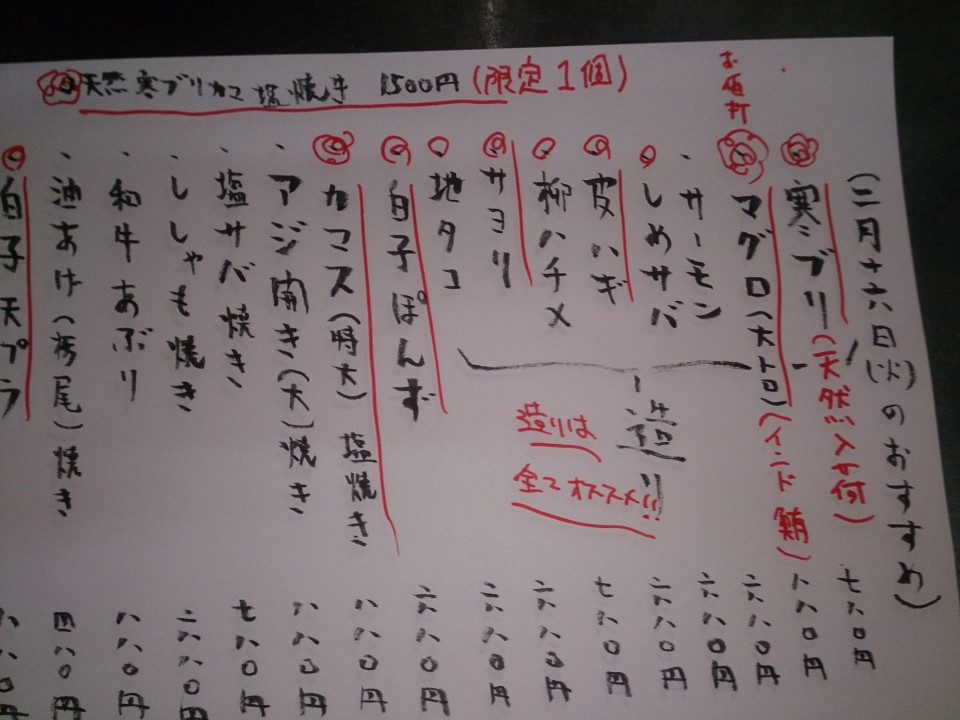 天然寒ブリカマ塩焼き 1500円(限定1個)
(二月十六日(火)のおすすめ)
寒ブリ(天然)入荷) 七八0円
お値打
マグロ(大トロ)(インド鮪) 八八0円
・サーモン 六八0円
しめサバ 六八0円
皮ハギ 六八0円
柳ハチメ 七八0円
サヨリ 六八0円
地タコ 六八0円
造り
造りは
全てオススメ!!
白子ぽんず 六八0円
カマス(特大)塩焼き 八八0円
・アジ開き(大)焼き 八八0円
・塩サバ焼き 七八0円
・ししゃも焼き 六八0円
・和牛あぶり 八八0円
・油あげ(栃尾)焼き 四八0円
白子天プラ 八八0円